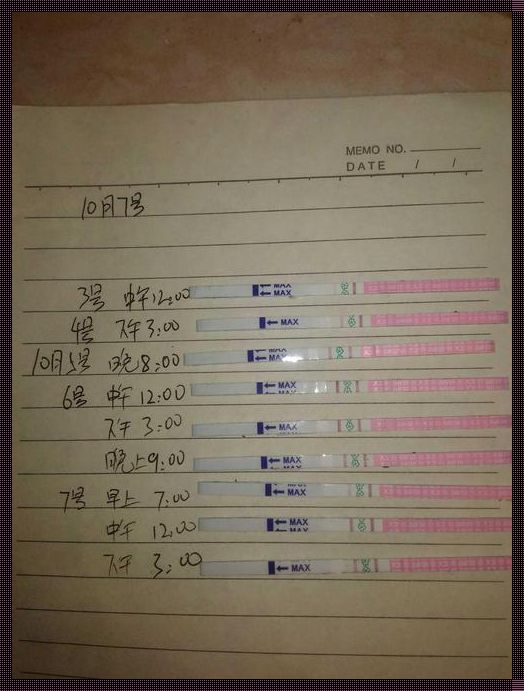 MEMO NO.
DATE / /
10月7号
3号 中午12:00 MAX MAX
4号 下午3:00 MAX
10月5号 晚8:00 MAX MAX
6号 中午12:00 MAX MAX
下午3:00 MAX
晚上9:00 MAX MAX
7号 早上7:00 MAX MAX
中午12:00 MAX MAX
下午3:00 MAX